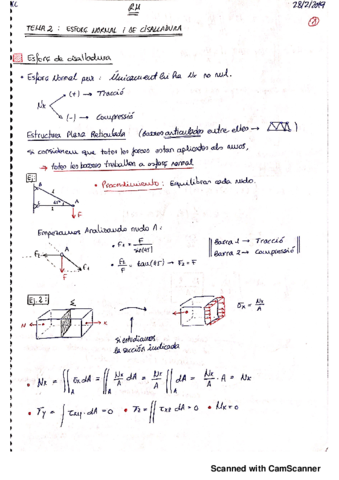 RM
28/2/2019
①
TEMA 2: ESFORÇ NORMAL I DE CISALLADURA
Esforç de cisalladura
• Esforç Normal pur: únicament hi ha Nx no nul.
Nx
(+) → Tracció
(-) → Compressió
Estructura Plana Reticulada: (Barres articulades entre elles →
Si considerem que totes les forces estan aplicades als nusos,
→ totes les barres treballen a esforç normal
Ej:
• Procedimiento: Equilibrar cada nudo.
B
1
2
45°
A
F
Empezamos Analizando nudo A:
F2 ←
A
F1
F
• F1 = F / sin(45)
• F2 / F = tan(45) → F2 = F
Barra 1 → Tracció
Barra 2 → Compressió
Ej 2:
Σ
N
si estudiamos
la sección indicada
σx = Nx / A
• Nx = ∬A σx dA = ∬A Nx/A dA = Nx/A ∬A dA = Nx/A · A = Nx
• Ty = ∫ τxy · dA = 0 • Tz = ∬ τxz dA = 0 • Mx = 0
Scanned with CamScanner